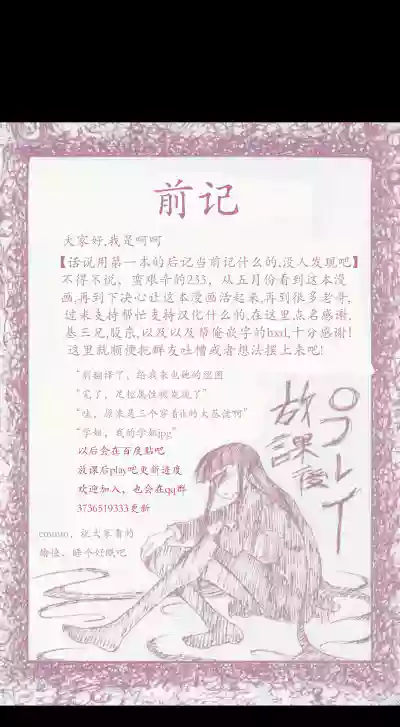 前记
大家好,我是呵呵
【话说用第一本的后记当前记什么的,没人发现吧】
不得不说, 蛮艰辛的233, 从五月份看到这本漫
画,再到下决心让这本漫画活起来,再到很多老哥,
过来支持帮忙支持汉化什么的,在这里点名感谢.
基三兄,殷亮,以及以及帮俺嵌字的hxd,十分感谢!
这里就顺便把群友吐槽或者想法摆上来吧!
"别翻译了, 给我来也她的涩图
"完了, 足控属性被发现了"
"哇, 原来是三个穿着
"学姐, 我的学姐jpg"
以后会在百度贴吧
放课后play吧更新进度
欢迎加入, 也会在qq群
3736519333更新
emmm, 祝大家看的
愉快, 睡个好觉吧
放課後
プレイ